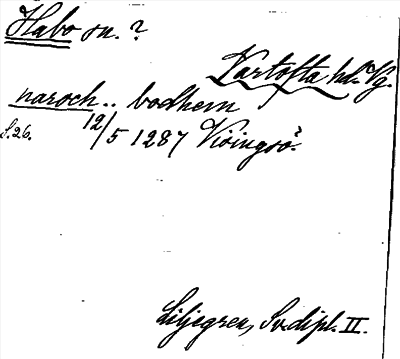 Habo sn. ?
Vartofta hd. Vg.
naroch .. bodhem
S. 26. 12/5 1287 Visingsö.
Liljegren, Sv. dipl. II.